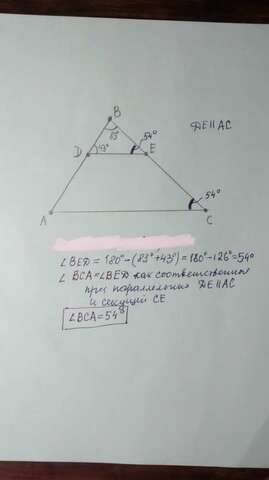 B
83°
54°
DE||AC
D
43°
E
54°
A
C
∠BED = 180° - (83° + 43°) = 180° - 126° = 54°
∠ BCA = ∠BED как соответственные
при параллельных DE||AC
и секущей CE
∠BCA = 54°